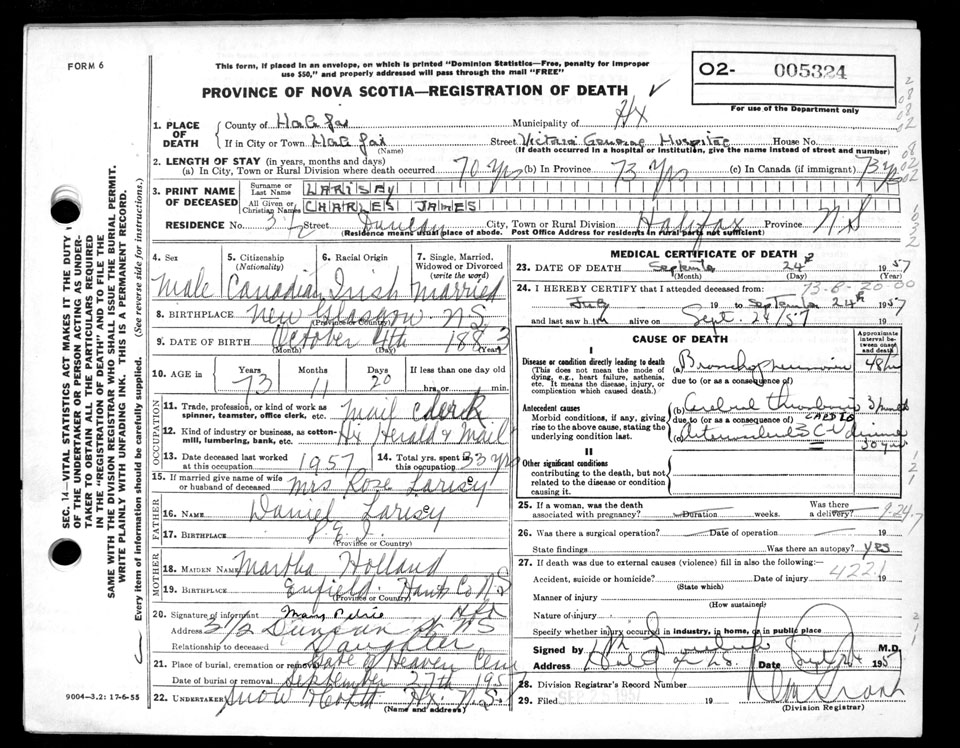 FORM 6
This form, if placed in an envelope, on which is printed "Dominion Statistics—Free, penalty for improper
use $50," and properly addressed will pass through the mail "FREE"
O2- 005324
For use of the Department only
PROVINCE OF NOVA SCOTIA—REGISTRATION OF DEATH
1. PLACE OF DEATH
County of Halifax Municipality of Hx
If in City or Town Halifax Street Victoria General Hospital House No.
(Name) (If death occurred in a hospital or institution, give the name instead of street and number)
2. LENGTH OF STAY (in years, months and days)
(a) In City, Town or Rural Division where death occurred 70 yrs (b) In Province 73 Yrs (c) In Canada (if immigrant) 73 yrs
3. PRINT NAME OF DECEASED
Surname or Last Name LARISEY
All Given or Christian Names CHARLES JAMES
RESIDENCE No. 3½ Street Duncan City, Town or Rural Division Halifax Province N.S
(Residence means usual place of abode. Post Office Address for residents in rural parts not sufficient)
4. Sex 5. Citizenship (Nationality) 6. Racial Origin 7. Single, Married, Widowed or Divorced (write the word)
Male Canadian Irish Married
8. BIRTHPLACE New Glasgow N.S
(Province or Country)
9. DATE OF BIRTH October 4th 1883
(Month) (Day) (Year)
10. AGE in Years Months Days If less than one day
73 11 20 hrs. or min.
OCCUPATION
11. Trade, profession, or kind of work as spinner, teamster, office clerk, etc. Mail Clerk
12. Kind of industry or business, as cotton-mill, lumbering, bank, etc. Hx Herald & Mail
13. Date deceased last worked at this occupation 1957 14. Total yrs. spent in this occupation 33 yrs
15. If married give name of wife or husband of deceased Mrs Rose Larisey
FATHER
16. NAME Daniel Larisey
17. BIRTHPLACE P.E.I.
(Province or Country)
MOTHER
18. MAIDEN NAME Martha Holland
19. BIRTHPLACE Enfield Hants Co N.S
(Province or Country)
20. Signature of informant Mary Petrie
Address 3½ Duncan St Hfx NS
Relationship to deceased Daughter
21. Place of burial, cremation or removal Gate of Heaven Cem
Date of burial or removal September 27th 1957
22. UNDERTAKER Snow & Co Ltd Hx. N.S.
(Name and address)
MEDICAL CERTIFICATE OF DEATH
23. DATE OF DEATH September 24th 1957
(Month) (Day) (Year)
73-B-20-00
24. I HEREBY CERTIFY that I attended deceased from:
July 19 to September 24th 1957
and last saw him alive on Sept. 24/57
CAUSE OF DEATH
Approximate interval between onset and death
I
Disease or condition directly leading to death
(This does not mean the mode of dying, e.g., heart failure, asthenia, etc. It means the disease, injury, or complication which caused death.)
(a) Bronchopneumonia 48 hrs
due to (or as a consequence of)
Antecedent causes
Morbid conditions, if any, giving rise to the above cause, stating the underlying condition last.
(b) Cerebral Thrombosis 3 months
due to (or as a consequence of) CARDIO
(c)
II
Other significant conditions
contributing to the death, but not related to the disease or condition causing it.
25. If a woman, was the death associated with pregnancy? Duration weeks. Was there a delivery? 9-24-7
26. Was there a surgical operation? Date of operation 19
State findings Was there an autopsy? yes
27. If death was due to external causes (violence) fill in also the following:
Accident, suicide or homicide? Date of injury 4221 19
(State which)
Manner of injury
(How sustained)
Nature of injury
Specify whether injury occurred in industry, in home, or in public place
Signed by M.D.
Address Date Sept 24 1957
28. Division Registrar's Record Number
29. Filed 19
(Division Registrar)
SEC. 14—VITAL STATISTICS ACT MAKES IT THE DUTY OF THE UNDERTAKER OR PERSON ACTING AS UNDERTAKER TO OBTAIN ALL THE PARTICULARS REQUIRED IN THE "REGISTRATION OF DEATH" AND TO FILE THE SAME WITH THE DIVISION REGISTRAR WHO SHALL ISSUE THE BURIAL PERMIT.
WRITE PLAINLY WITH UNFADING INK. THIS IS A PERMANENT RECORD.
Every item of information should be carefully supplied. (See reverse side for instructions.)
9004—3.2: 17-6-55